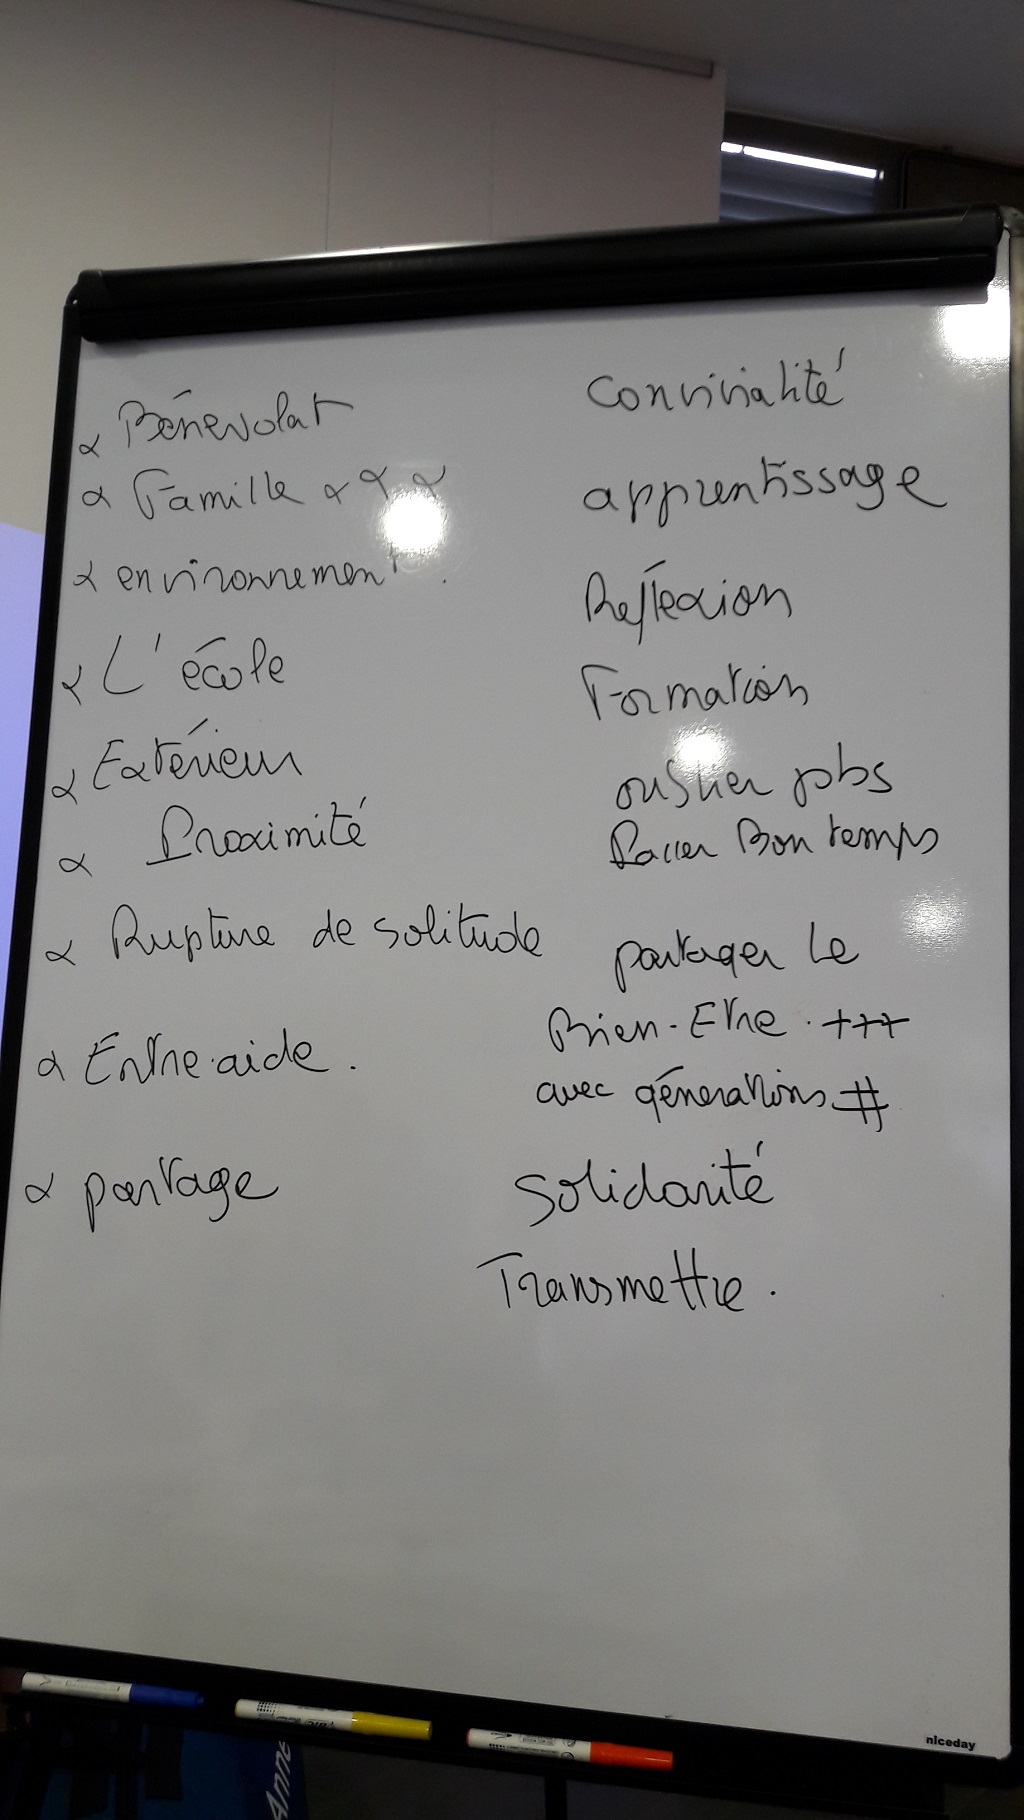 α Bénévolat
α Famille α α α
α environnement.
α L'école
α Extérieur
α Proximité
α Rupture de solitude
α Entre.aide.
α partage
Convivialité
apprentissage
Réflexion
Formation
oublier pbs
Passer Bon temps
partager le
Bien-Etre. +++
avec générations #
Solidarité
Transmettre.
niceday
Anne